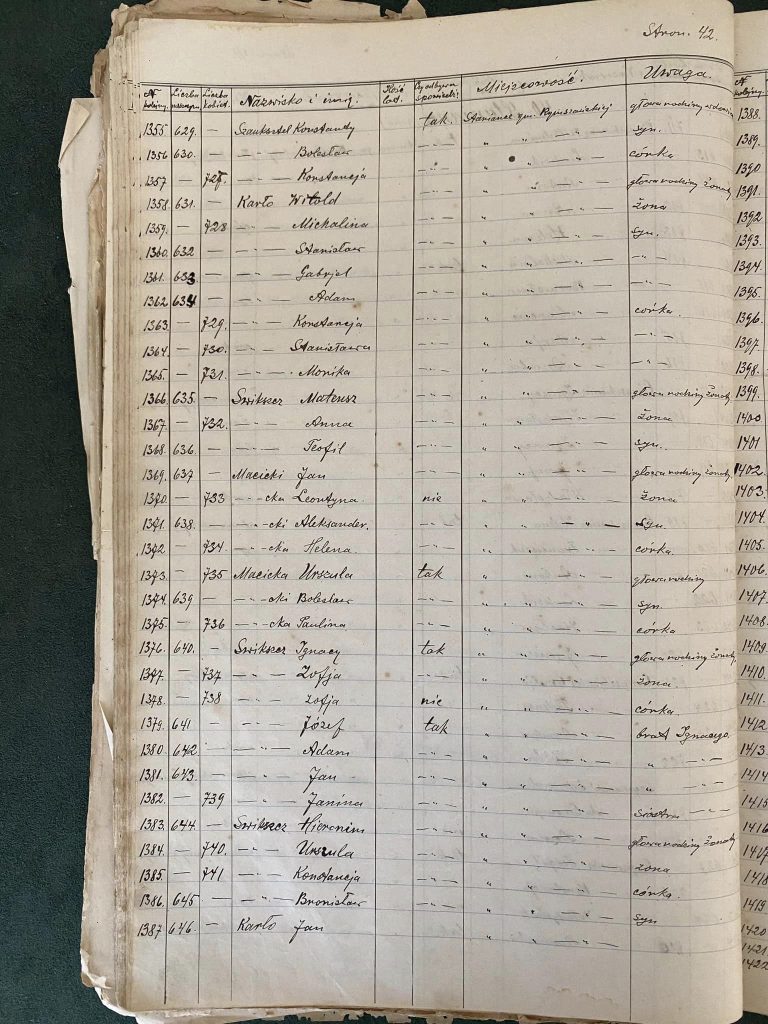 Stron. 42.
N kolejny. Liczba mężczyzn Liczba kobiet. Nazwisko i imię. Ilość lat. Czy odbywa spowiedź? Miejscowość. Uwaga N kolejny.
1355. 629. — Konstanty tak. głowa rodziny 1388.
1356 630. — — " — Bolesław — " — " " — " — syn. 1389.
1357 — 727. — " — Konstancja — " — " " — " — córka 1390
1358. 631. — Karło Witold — " — " " — " — głowa rodziny żonaty 1391.
1359. — 728 — " — Michalina — " — " " — " — żona 1392
1360. 632 — — " — Stanisław — " — " " — " — syn. 1393.
1361. 633 — — " — Gabrjel — " — " " — " — — " — 1394.
1362. 634 — — " — Adam — " — " " — " — — " — 1395.
1363. — 729. — " — Konstancja — " — " " — " — córka. 1396
1364. — 730. — " — Stanisława — " — " " — " — — " — 1397
1365. — 731. — " — Monika — " — " " — " — — " — 1398.
1366 635. — Swikszcz Mateusz — " — " " — " — głowa rodziny żonaty 1399.
1367. — 732. — " — Anna — " — " " — " — żona 1400
1368. 636. — — " — Teofil — " — " " — " — syn. 1401
1369. 637 — Macicki Jan — " — " " — " — głowa rodziny żonaty 1402.
1370. — 733 — " — cka Leontyna. nie " " — " — żona 1403.
1371. 638. — — " — cki Aleksander. — " — " " — " — syn 1404.
1372 — 734. — " — cka Helena. — " — " " — " — córka. 1405.
1373. — 735 Macicka Urszula tak " " — " — głowa rodziny 1406.
1374. 639 — — " — cki Bolesław — " — " " — " — syn. 1407.
1375. — 736 — " — cka Paulina — " — " " — " — córka 1408.
1376. 640. — Swikszcz Ignacy tak " " — " — głowa rodziny żonaty. 1409
1377. — 737 — " — Zofja — " — " " — " — żona. 1410.
1378. — 738 — " — Zofja nie " " — " — córka 1411.
1379. 641 — — " — Józef tak " " — " — brat Ignacego. 1412
1380. 642. — — " — Adam — " — " " — " — " — " — 1413
1381. 643. — — " — Jan — " — " " — " — " — " — 1414
1382. — 739 — " — Janina — " — " " — " — siostra — " — 1415
1383. 644. — Swikszcz Hieronim — " — " " — " — głowa rodziny żonaty 1416
1384. — 740. — " — Urszula — " — " " — " — żona 1417
1385 — 741 — " — Konstancja — " — " " — " — córka. 1418
1386. 645. — — " — Bronisław — " — " " — " — syn 1419
1387 646. — Karło Jan — " — " " — " — 1420
1421.
1422